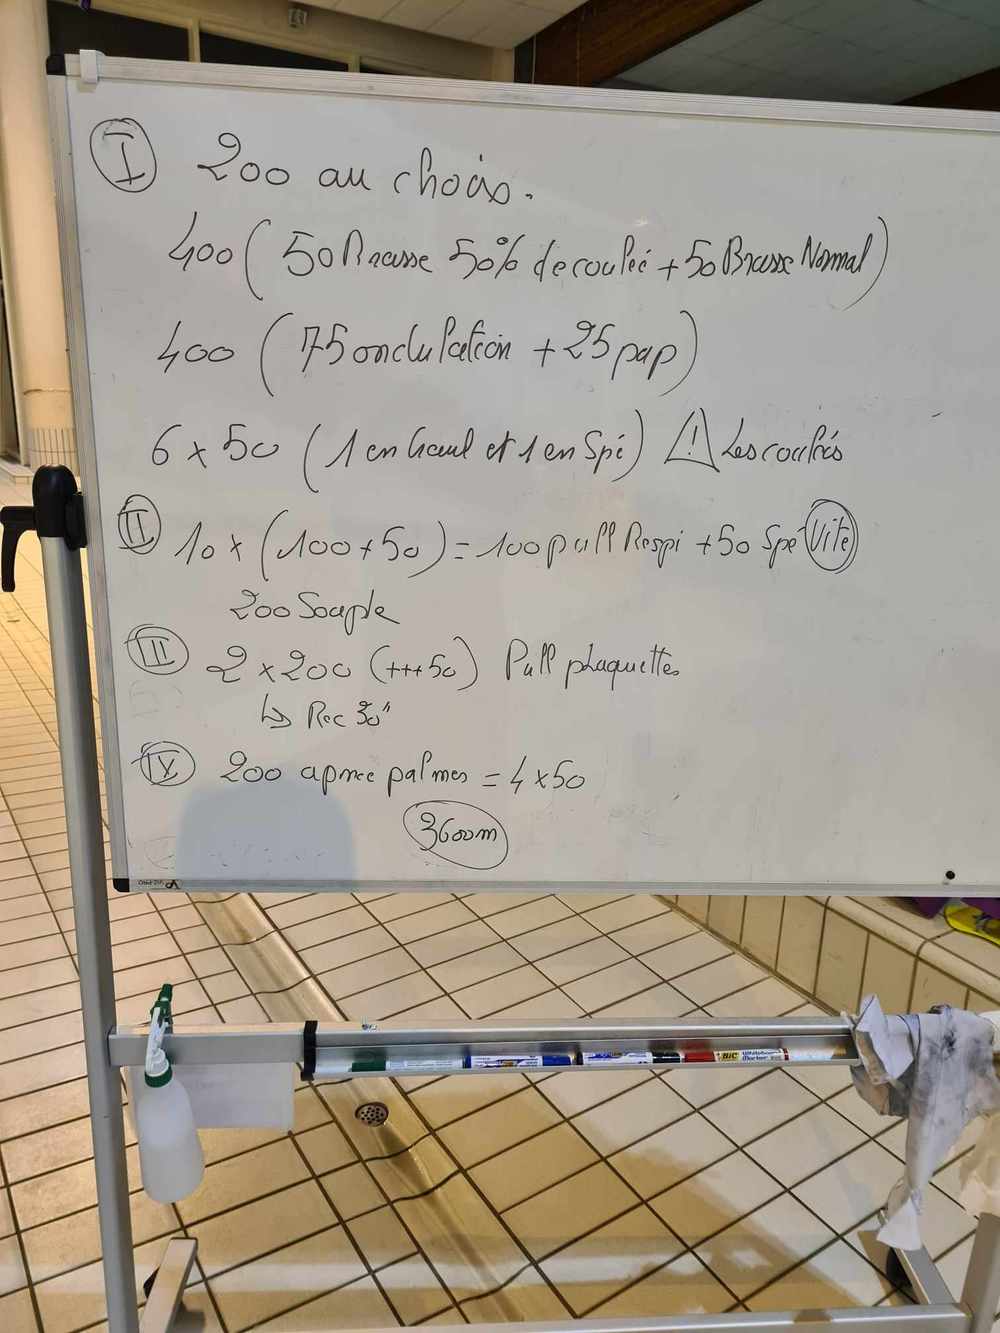 I 200 au choix.
400 (50 Brasse 50% de coulée + 50 Brasse Normal)
400 (75 ondulation + 25 pap)
6 x 50 (1 en Crawl et 1 en Spé) ⚠ Les coulées
II 10 x (100 + 50) = 100 pull Respi + 50 Spé Vite
200 Souple
III 2 x 200 (+++ 50) Pull plaquettes
↳ Rec 30"
IV 200 apnee palmes = 4 x 50
3600m
BIC